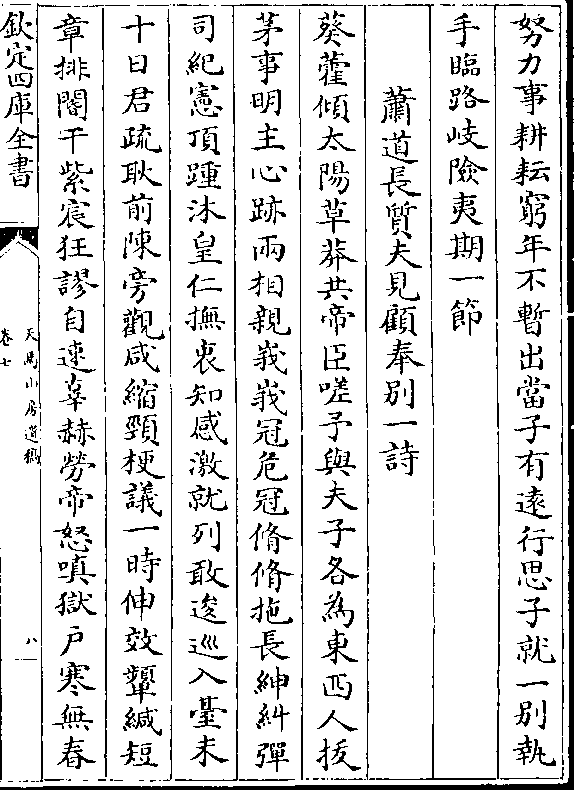 努力事耕耘窮年不暫出當子有遠行思子就一別執
手臨路岐險夷期一節
蕭道長質夫見顧奉別一詩
葵藿傾太陽草莽共帝臣嗟予與夫子各為東西人拔
茅事明主心跡兩相親峩峩冠危冠脩脩拖長紳糾彈
司紀憲頂踵沐皇仁撫衷知感激就列敢逡巡入臺未
十日君疏耿前陳旁觀咸縮頸梗議一時伸效顰緘短
章排閶干紫宸狂謬自速辜赫勞帝怒嗔獄戶寒無春
欽定四庫全書
天馬山房遺稿
卷七
八